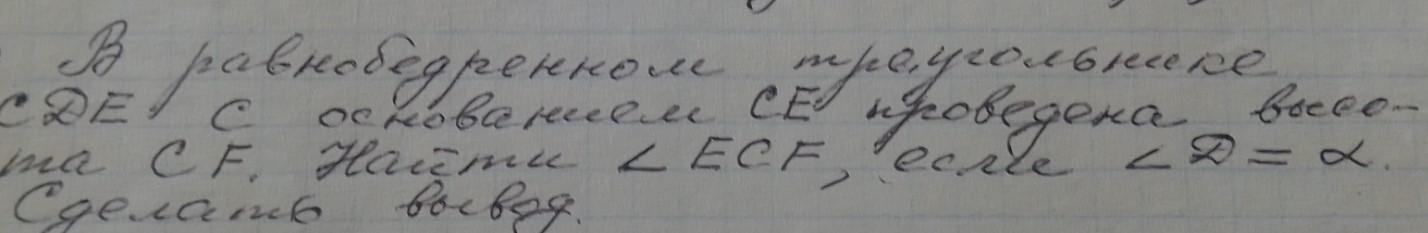 В равнобедренном треугольнике
CDE с основанием CE проведена высо-
та CF. Найти ∠ECF, если ∠D = α.
Сделать вывод.